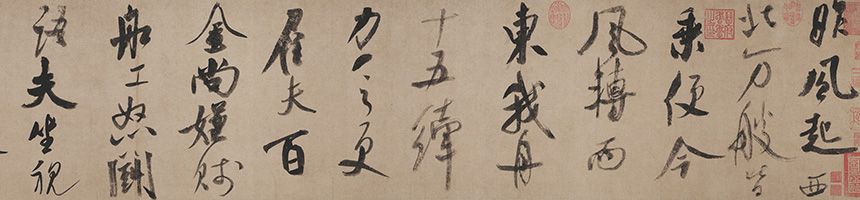 昨風起西
北万艘皆
乘便今
風轉而
東我舟
十五縴
力乏更
雇夫百
金尚嫌賤
船工怒鬪
語夫坐視